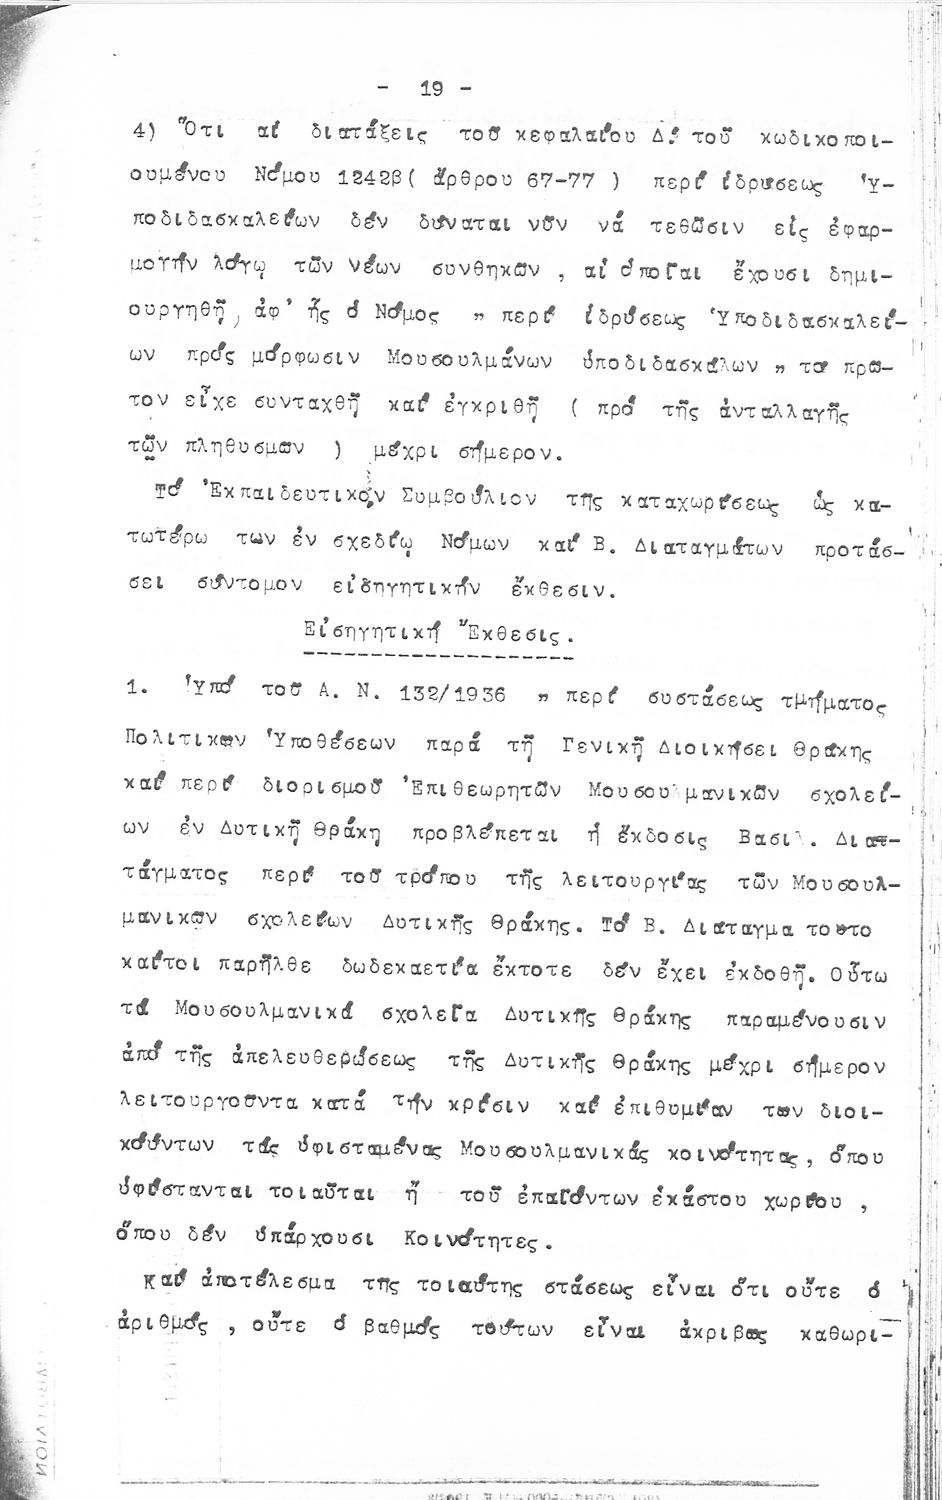 - 19 -
4) Ὅτι αἱ διατάξεις τοῦ κεφαλαίου Δ! τοῦ κωδικοποι-
ουμένου Νόμου 1242β( ἄρθρου 67-77 ) περί ἱδρύσεως Ὑ-
ποδιδασκαλείων δέν δύναται νῦν νά τεθῶσιν εἰς ἐφαρ-
μογήν λόγῳ τῶν νέων συνθηκῶν , αἱ ὁποῖαι ἔχουσι δημι-
ουργηθῆ, ἀφ' ἧς ὁ Νόμος „ περί ἱδρύσεως Ὑποδιδασκαλεί-
ων πρός μόρφωσιν Μουσουλμάνων ὑποδιδασκάλων „ το πρῶ-
τον εἶχε συνταχθῆ καί ἐγκριθῆ ( πρό τῆς ἀνταλλαγῆς
τῶν πληθυσμῶν ) μέχρι σήμερον.
Τό Ἐκπαιδευτικόν Συμβούλιον τῆς καταχωρίσεως ὡς κα-
τωτέρω των ἐν σχεδίῳ Νόμων καί Β. Διαταγμάτων προτάσ-
σει σύντομον εἰδηγητικήν ἔκθεσιν.
Εἰσηγητική Ἔκθεσις.
1. Ὑπό τοῦ Α. Ν. 132/1936 „ περί συστάσεως τμήματος
Πολιτικῶν Ὑποθέσεων παρά τῇ Γενικῇ Διοικήσει Θράκης
καί περί διορισμοῦ Ἐπιθεωρητῶν Μουσουλμανικῶν σχολεί-
ων ἐν Δυτικῇ Θράκῃ προβλέπεται ἡ ἔκδοσις Βασιλ. Δια-
τάγματος περί τοῦ τρόπου τῆς λειτουργίας τῶν Μουσουλ-
μανικῶν σχολείων Δυτικῆς Θράκης. Τό Β. Διαταγμα τοῦτο
καίτοι παρῆλθε δωδεκαετία ἔκτοτε δέν ἔχει ἐκδοθῆ. Οὕτω
τά Μουσουλμανικά σχολεῖα Δυτικῆς Θράκης παραμένουσιν
ἀπό τῆς ἀπελευθερώσεως τῆς Δυτικῆς Θράκης μέχρι σήμερον
λειτουργοῦντα κατά τήν κρίσιν καί ἐπιθυμίαν των διοι-
κούντων τάς ὑφισταμένας Μουσουλμανικάς κοινότητας, ὅπου
ὑφίστανται τοιαῦται ἤ τοῦ ἐπαΐοντων ἑκάστου χωρίου ,
ὅπου δέν ὑπάρχουσι Κοινότητες.
Καί ἀποτέλεσμα τῆς τοιαύτης στάσεως εἶναι ὅτι οὔτε ὁ
ἀριθμός , οὔτε ὁ βαθμός τούτων εἶναι ἀκριβῶς καθωρι-